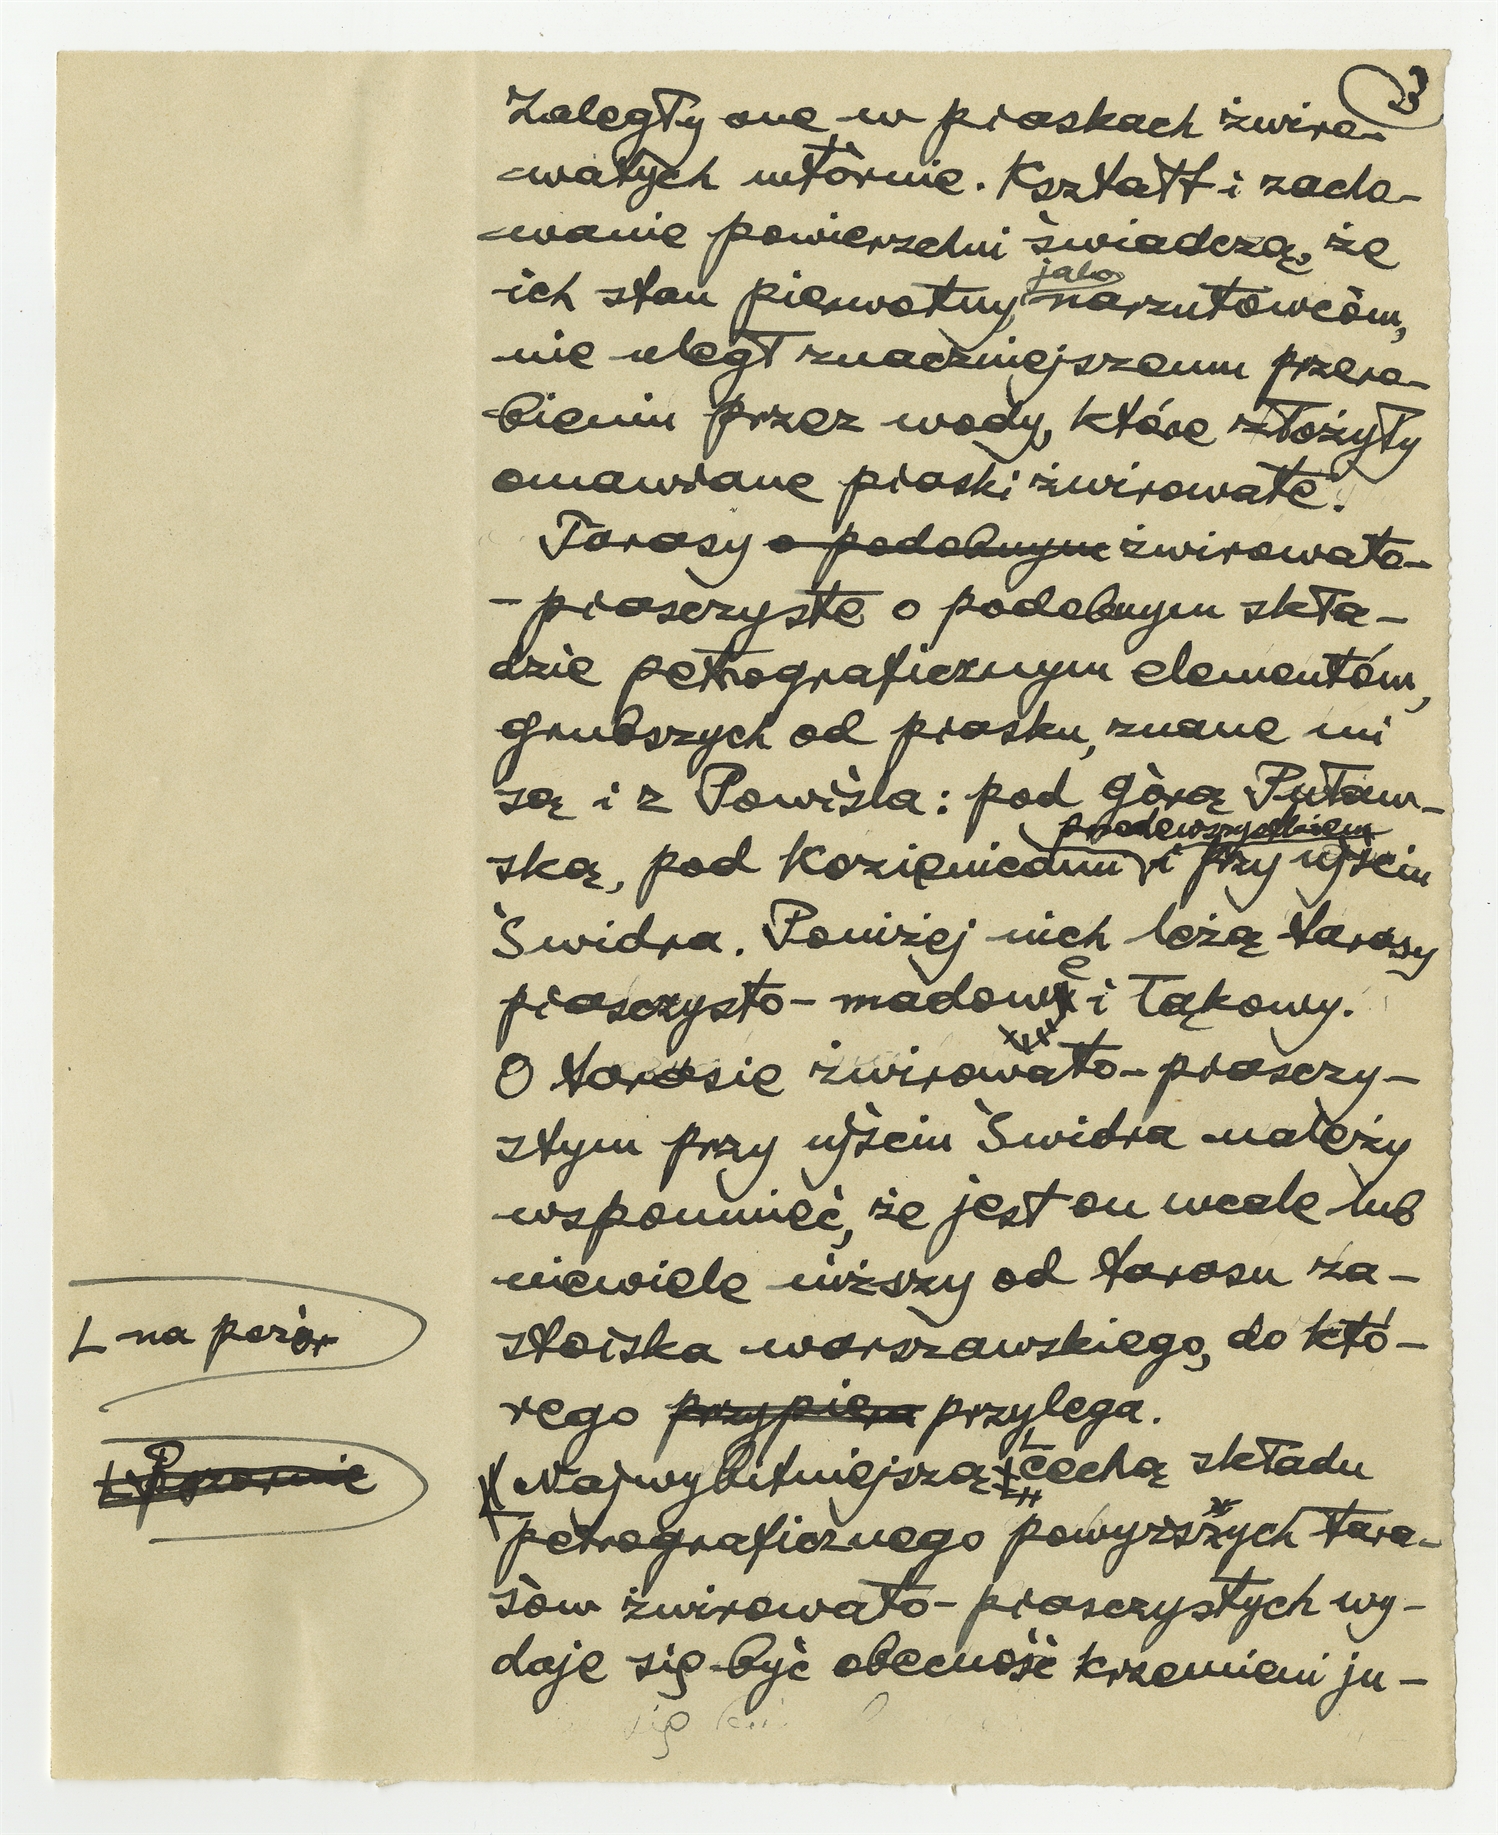 3
Zaległy one w piaskach żwiro-
-watych wtórnie. Kształt i zacho-
-wanie powierzchni świadczą, że
jako
ich stan pierwotny, narzutowców,
nie uległ znaczniejszemu przero-
-bieniu przez wody, które złożyły
omawiane piaski żwirowate.
Tarasy o podobnym żwirowato-
-piaszczyste o podobnym skła-
dzie petrograficznym elementów,
grubszych od piasku, znane mi
są i z Powiśla: pod górą Puław-
przedewszystkiem
ską, pod Kozienicami i przy ujściu
Świdra. Poniżej nich leżą tarasy
piaszczysto-madowe i łąkowy.
O tarasie żwirowato-piaszczy-
stym przy ujściu Świdra należy
wspomnieć, że jest on wcale lub
niewiele niższy od tarasu za-
L na pozór
stoiska warszawskiego, do któ-
rego przypiera przylega.
Najwybitniejszą cechą składu
L Pozornie
petrograficznego powyższych tara-
sów żwirowato-piaszczystych wy-
daje się być obecność krzemieni ju-